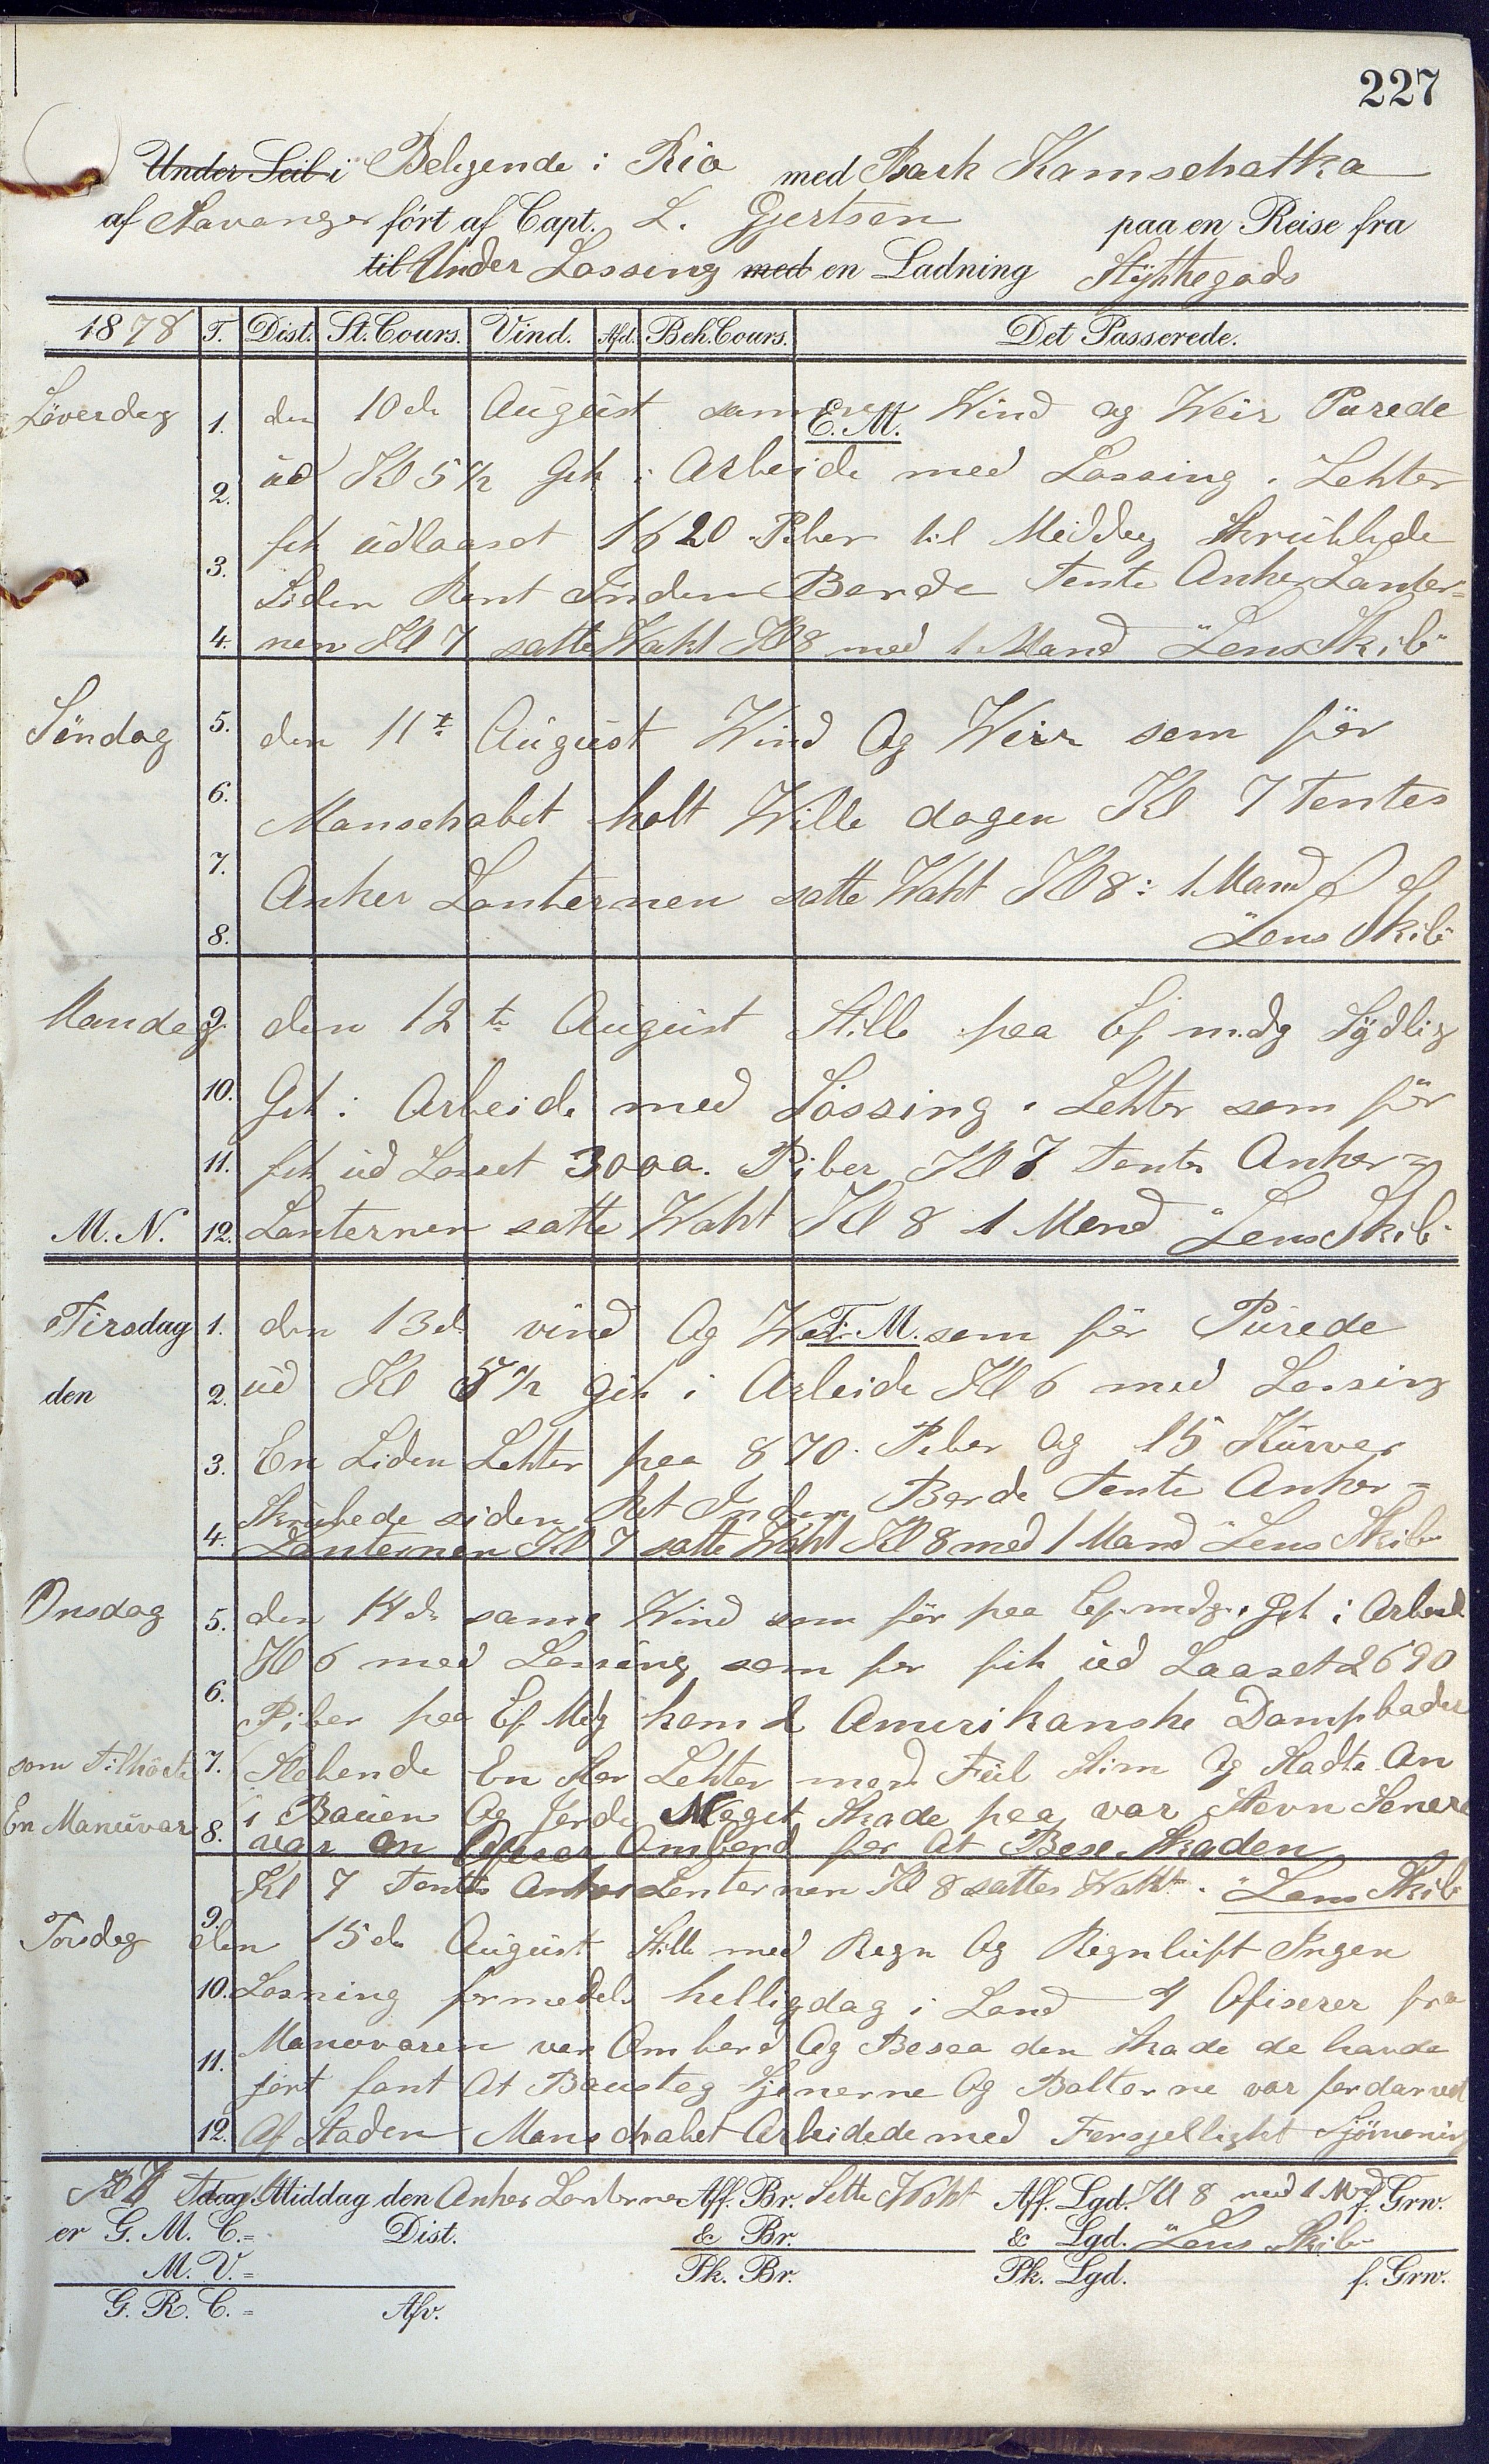 227
Under Seil i Belegende i Rio med Bark Kamschatka
af Stavanger ført af Capt. L. Gjertsen paa en Reise fra
til Under Lossing med en Ladning Stykkegods
1878 T. Dist. St. Cours. Vind. Afd. Beh. Cours. Det Passerede.
Löverdag 1. den 10de August samme Wind og Weir Purede
E. M.
2. ud Kl 5 1/2 Gik i Arbeide med Lossing i Lekter
3. fik udlaaset 1620 Piber til Middag Skrubbede
Siden Rent Inden Borde Tente Anker Lanter=
4. nen Kl 7 satte Wakt Kl 8 med 1 Mand "Lens Skib"
Söndag 5. den 11te August Wind Og Weir som för
6. Manschabet holt Wille dagen Kl 7 Tentes
7. Anker Lanternen satte Wakt Kl 8: 1 Mand
8. "Lens Skib"
Mandag 9. den 12te August Stille paa Ef m.dg Sÿdlig
10. Gik i Arbeide med Lossing i Lekter som för
11. fik ud Losset 3000. Piber Kl 7 Tente Anker=
M. N. 12. Lanternen satte Wakt Kl 8 1 Mand "Lens Skib"
Tirsdag 1. den 13de vind Og Weir som för Purede
F. M.
den 2. ud Kl 5 1/2 gik i Arbeide Kl 6 med Lossing
3. En Liden Lekter paa 870. Piber Og 15 Kurver
Skrubede siden Ret Inden Borde Tente Anker=
4. Lanternen Kl 7 satte Wakt Kl 8 med 1 Mand "Lens Skib"
Onsdag 5. den 14de same Wind som för paa Efmdg. Gik i Arbeid
Kl 6 med Lossing som för fik ud Laaset 2690
6. Piber paa Ef Mdg kom 2 Amerikanske Dampbader
som Tilhörte 7. Slebende En Stor Lekter med Ful Stim Og Stödte An
En Manuvar 8. i Bauen Og Jorde Meget Skade paa var Stevn Senere
var en Ofiser Ombord for At Bese Skaden
Kl 7 Tentes Anker Lanternen Kl 8 sattes Wakt. "Lens Skib"
9.
Torsdag den 15de August Stille med Regn Og Regnluft Ingen
10. Losning formedels helligdag i Land 4 Ofiserer fra
11. Manovaren var Ombord Og Besaa den Skade de havde
jort fant At Baustag Kjenerne Og Bolterne var fordarvet
12. Af Staden Manschabet Arbeidede med Forsjelligt Sjömaning
Kl 7 Tdag Middag den Anker Lanterne Aff. Br. Sette Wakt Aff. Lgd. Kl 8 med 1 Md f. Grw.
er G. M. C. = Dist. & Br. & Lgd. "Lens Skib"
M. V. = Pk. Br. Pk. Lgd. f. Grw.
G. R. C. = Afv.